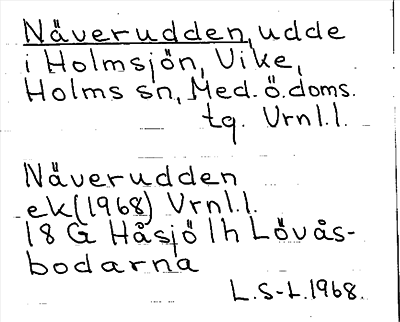 Näverudden, udde
i Holmsjön, Vike,
Holms sn, Med. ö. doms.
tg. Vrnl.l.
Näverudden
ek(1968) Vrnl.l.
18 G Håsjö 1h Lövås-
bodarna
L.S-L.1968.